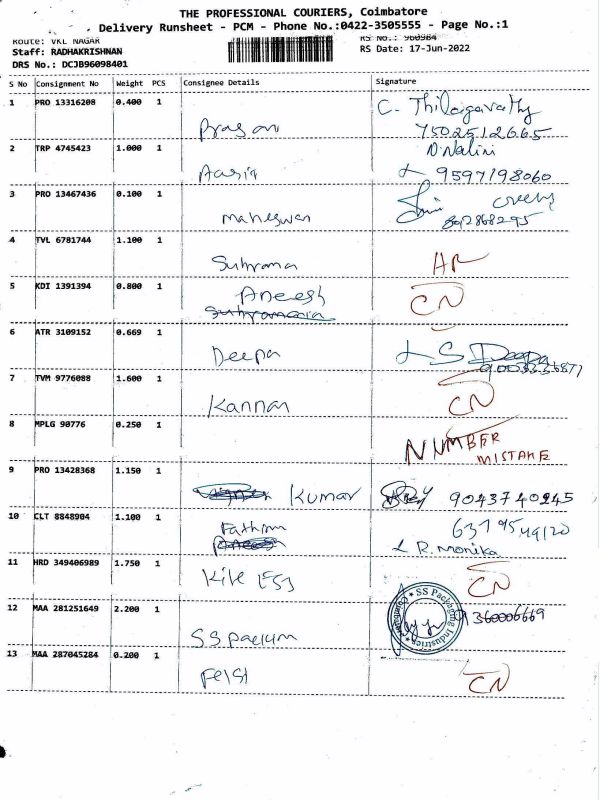 THE PROFESSIONAL COURIERS, Coimbatore
Delivery Runsheet - PCM - Phone No.:0422-3505555 - Page No.:1
Route: VKL NAGAR RS No.: 960984
Staff: RADHAKRISHNAN RS Date: 17-Jun-2022
DRS No.: DCJB96098401
S No Consignment No Weight PCS Consignee Details Signature
1 PRO 13316208 0.400 1 C. Thilagavathy
Prasan 7502512665
2 TRP 4745423 1.000 1 D. Nalini
9597198060
3 PRO 13467436 0.100 1
Maheswari
4 TVL 6781744 1.100 1
Suhrama
5 KDI 1391394 0.800 1 Aneesh CN
6 ATR 3109152 0.669 1
Deepa S Deepa
7 TVM 9776088 1.600 1
Kannan CN
8 MPLG 90776 0.250 1 NUMBER
MISTAKE
9 PRO 13428368 1.150 1
Kumar 9043740245
10 CLT 8848904 1.100 1 Fathim
R. Monika
11 HRD 349406989 1.750 1 CN
12 MAA 281251649 2.200 1 SS Packaging Industries
13 MAA 287045284 0.200 1
CN